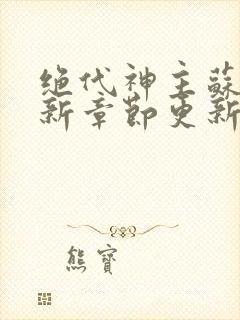 绝代神主蘇
新章節更新
熊寶